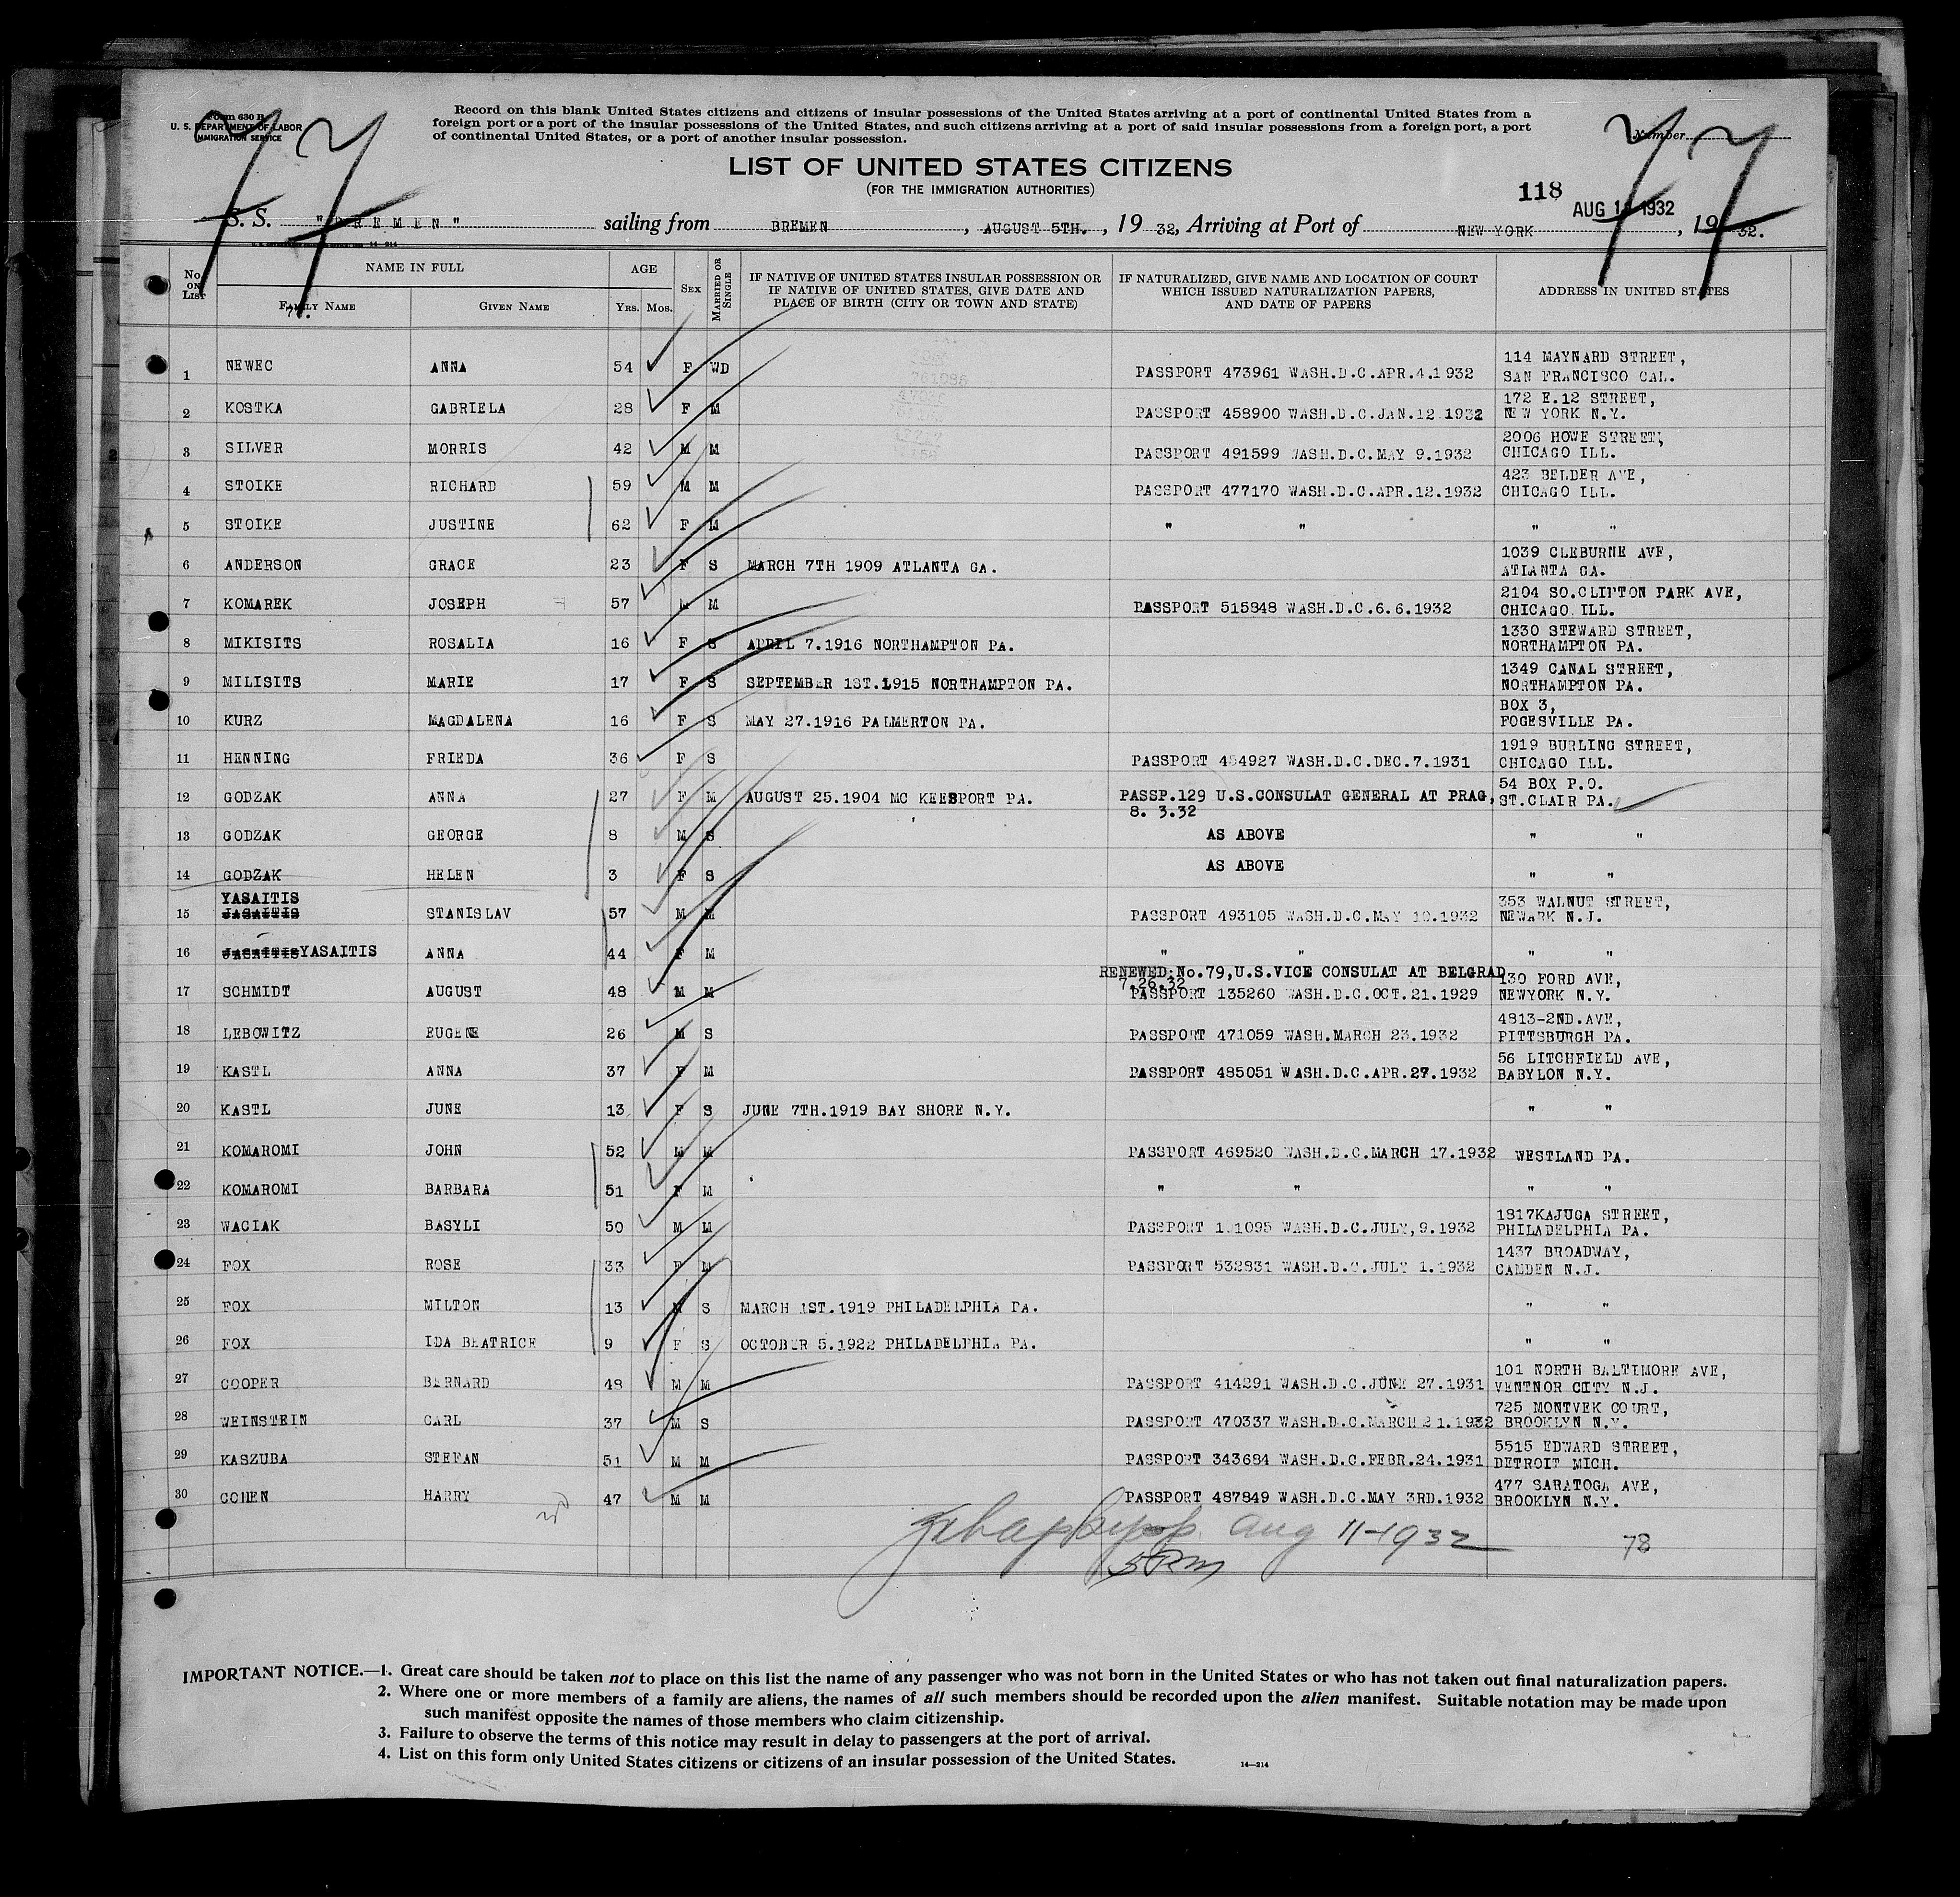 77 77
Form 630 B
U. S. DEPARTMENT OF LABOR
IMMIGRATION SERVICE
Record on this blank United States citizens and citizens of insular possessions of the United States arriving at a port of continental United States from a
foreign port or a port of the insular possessions of the United States, and such citizens arriving at a port of said insular possessions from a foreign port, a port
of continental United States, or a port of another insular possession.
Number
LIST OF UNITED STATES CITIZENS
(FOR THE IMMIGRATION AUTHORITIES)
118
AUG 1 1932
S. S. "BREMEN" sailing from BREMEN, AUGUST 5TH., 1932, Arriving at Port of NEW YORK, 1932.
14-214
No. ON LIST
NAME IN FULL
FAMILY NAME
GIVEN NAME
AGE
YRS. MOS.
SEX
MARRIED OR SINGLE
IF NATIVE OF UNITED STATES INSULAR POSSESSION OR
IF NATIVE OF UNITED STATES, GIVE DATE AND
PLACE OF BIRTH (CITY OR TOWN AND STATE)
IF NATURALIZED, GIVE NAME AND LOCATION OF COURT
WHICH ISSUED NATURALIZATION PAPERS,
AND DATE OF PAPERS
ADDRESS IN UNITED STATES
1 NEWEC ANNA 54 F WD PASSPORT 473961 WASH.D.C.APR.4.1932 114 MAYNARD STREET,
SAN FRANCISCO CAL.
2 KOSTKA GABRIELA 28 F M PASSPORT 458900 WASH.D.C.JAN.12.1932 172 E.12 STREET,
NEW YORK N.Y.
3 SILVER MORRIS 42 M M PASSPORT 491599 WASH.D.C.MAY 9.1932 2006 HOWE STREET,
CHICAGO ILL.
4 STOIKE RICHARD 59 M M PASSPORT 477170 WASH.D.C.APR.12.1932 423 BELDER AVE,
CHICAGO ILL.
5 STOIKE JUSTINE 62 F M " " " "
6 ANDERSON GRACE 23 F S MARCH 7TH 1909 ATLANTA GA. 1039 CLEBURNE AVE,
ATLANTA GA.
7 KOMAREK JOSEPH 57 M M PASSPORT 515848 WASH.D.C.6.6.1932 2104 SO.CLIFTON PARK AVE,
CHICAGO ILL.
8 MIKISITS ROSALIA 16 F S APRIL 7.1916 NORTHAMPTON PA. 1330 STEWARD STREET,
NORTHAMPTON PA.
9 MILISITS MARIE 17 F S SEPTEMBER 1ST.1915 NORTHAMPTON PA. 1349 CANAL STREET,
NORTHAMPTON PA.
10 KURZ MAGDALENA 16 F S MAY 27.1916 PALMERTON PA. BOX 3,
FOGESVILLE PA.
11 HENNING FRIEDA 36 F S PASSPORT 454927 WASH.D.C.DEC.7.1931 1919 BURLING STREET,
CHICAGO ILL.
12 GODZAK ANNA 27 F M AUGUST 25.1904 MC KEESPORT PA. PASSP.129 U.S.CONSULAT GENERAL AT PRAG,
8. 3.32
54 BOX P.O.
ST.CLAIR PA.
13 GODZAK GEORGE 8 M S AS ABOVE " "
14 GODZAK HELEN 3 F S AS ABOVE " "
YASAITIS
15 JASAITIS STANISLAV 57 M M PASSPORT 493105 WASH.D.C.MAY 10.1932 353 WALNUT STREET,
NEWARK N.J.
16 JASAITIS YASAITIS ANNA 44 F M " " " "
RENEWED:No.79,U.S.VICE CONSULAT AT BELGRAD
7.26.32
17 SCHMIDT AUGUST 48 M M PASSPORT 135260 WASH.D.C.OCT.21.1929 130 FORD AVE,
NEWYORK N.Y.
18 LEBOWITZ EUGENE 26 M S PASSPORT 471059 WASH.MARCH 23.1932 4813-2ND.AVE,
PITTSBURGH PA.
19 KASTL ANNA 37 F M PASSPORT 485051 WASH.D.C.APR.27.1932 56 LITCHFIELD AVE,
BABYLON N.Y.
20 KASTL JUNE 13 F S JUNE 7TH.1919 BAY SHORE N.Y. " "
21 KOMAROMI JOHN 52 M M PASSPORT 469520 WASH.D.C.MARCH 17.1932 WESTLAND PA.
22 KOMAROMI BARBARA 51 F M " " " "
23 WACIAK BASYLI 50 M M PASSPORT WASH.D.C.JULY,9.1932 1817KAJUGA STREET,
PHILADELPHIA PA.
24 FOX ROSE 33 F M PASSPORT 532831 WASH.D.C.JULY 1.1932 1437 BROADWAY,
CAMDEN N.J.
25 FOX MILTON 13 M S MARCH 1ST.1919 PHILADELPHIA PA. " "
26 FOX IDA BEATRICE 9 F S OCTOBER 5.1922 PHILADELPHIA PA. " "
27 COOPER BERNARD 48 M M PASSPORT 414291 WASH.D.C.JUNE 27.1931 101 NORTH BALTIMORE AVE,
VENTNOR CITY N.J.
28 WEINSTEIN CARL 37 M S PASSPORT 470337 WASH.D.C.MARCH 21.1932 725 MONTVEK COURT,
BROOKLYN N.Y.
29 KASZUBA STEFAN 51 M M PASSPORT 343684 WASH.D.C.FEBR.24.1931 5515 EDWARD STREET,
DETROIT MICH.
30 COHEN HARRY 47 M M PASSPORT 487849 WASH.D.C.MAY 3RD.1932 477 SARATOGA AVE,
BROOKLYN N.Y.
Aug 11-1932
78
IMPORTANT NOTICE.—1. Great care should be taken not to place on this list the name of any passenger who was not born in the United States or who has not taken out final naturalization papers.
2. Where one or more members of a family are aliens, the names of all such members should be recorded upon the alien manifest. Suitable notation may be made upon
such manifest opposite the names of those members who claim citizenship.
3. Failure to observe the terms of this notice may result in delay to passengers at the port of arrival.
4. List on this form only United States citizens or citizens of an insular possession of the United States.
14—214